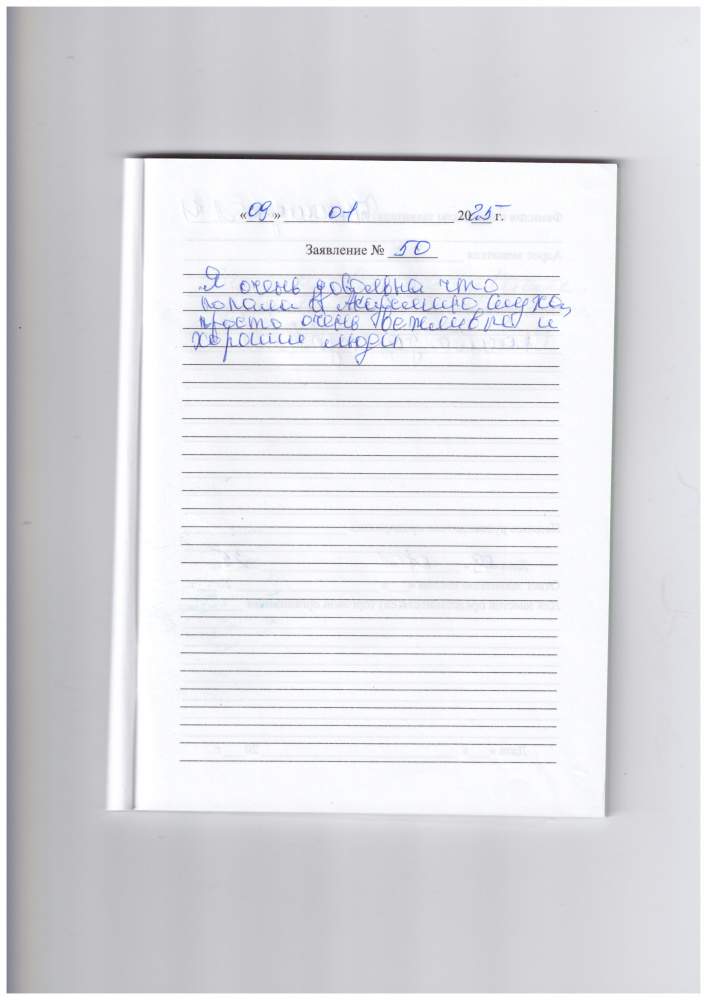 «09» 01 2025 г.
Заявление № 50
Я очень довольна что
попала в Академию слуха,
просто очень вежливые и
хорошие люди